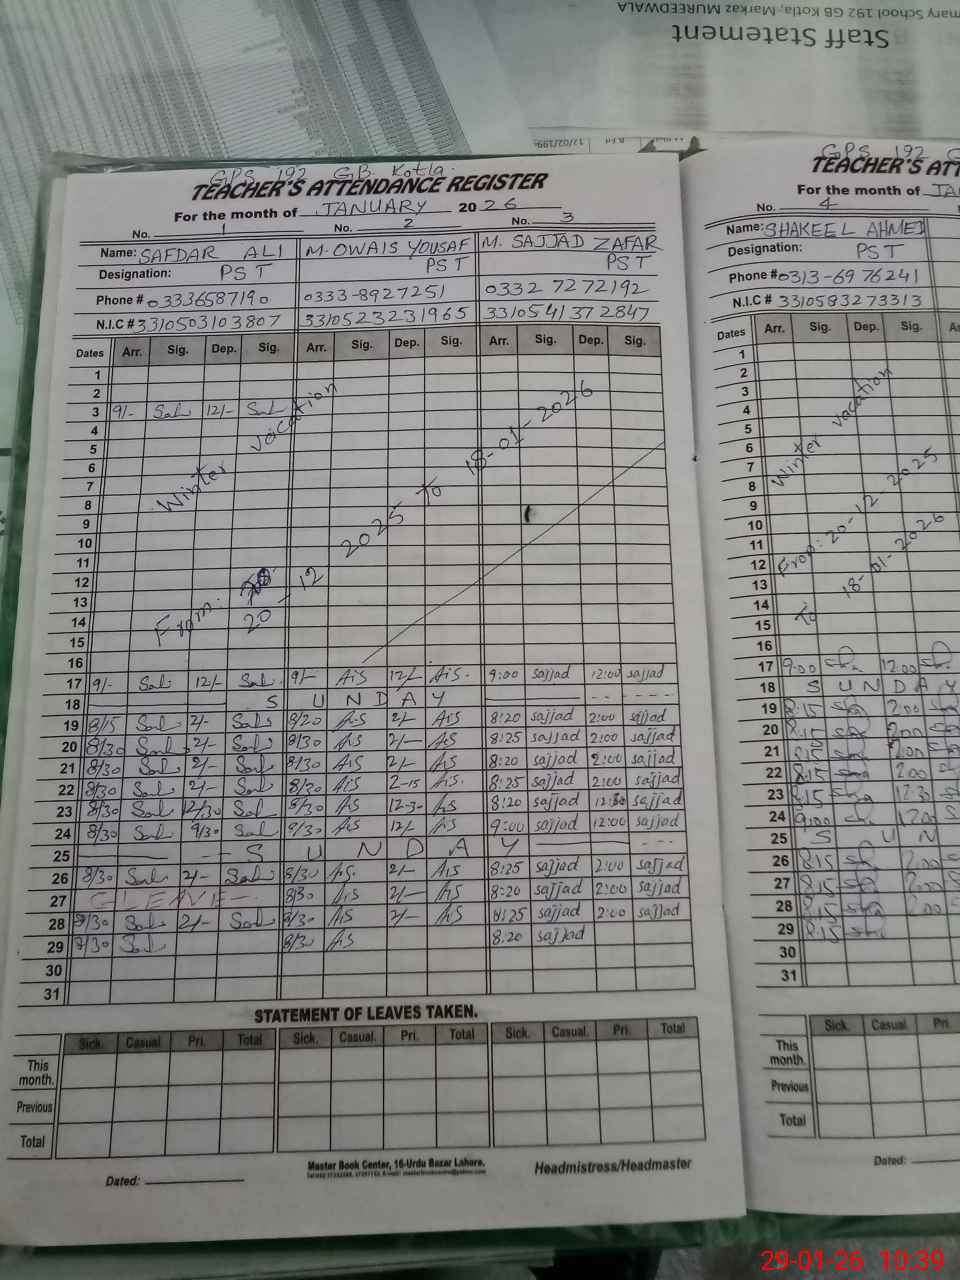 mary School 192 GB Kotla, Markaz MUREEDWALA
Staff Statement
GPS 192 GB Kotla
TEACHER'S ATTENDANCE REGISTER
For the month of JANUARY 2026
No. 1 No. 2 No. 3
Name: SAFDAR ALI M. OWAIS YOUSAF M. SAJJAD ZAFAR
Designation: PST PST PST
Phone # 03336587190 0333-8927251 0332 7272192
N.I.C # 3310503103807 3310523231965 3310541372847
Dates Arr. Sig. Dep. Sig. Arr. Sig. Dep. Sig. Arr. Sig. Dep. Sig.
1
2
3 9/- Sal 12/- Sal
4
5
6
7
8
9
10
11
12
13
14
15
16
Winter vacation
From: 20-12 2025 to 18-01-2026
17 9/- Sal 12/- Sal 9/- AiS 12/- AiS 9:00 sajjad 12:00 sajjad
18 S U N D A Y
19 8/15 Sal 2/- Sal 8/20 AiS 2/- AiS 8:20 sajjad 2:00 sajjad
20 8/30 Sal 2/- Sal 8/30 AiS 2/- AiS 8:25 sajjad 2:00 sajjad
21 8/30 Sal 2/- Sal 8/30 AiS 2/- AiS 8:20 sajjad 2:00 sajjad
22 8/30 Sal 2/- Sal 8/30 AiS 2-15 AiS 8:25 sajjad 2:00 sajjad
23 8/30 Sal 12/30 Sal 8/30 AiS 12-30 AiS 8:20 sajjad 12:30 sajjad
24 8/30 Sal 9/30 Sal 9/30 AiS 12/- AiS 9:00 sajjad 12:00 sajjad
25 S U N D A Y
26 8/30 Sal 2/- Sal 8/30 AiS 2/- AiS 8:25 sajjad 2:00 sajjad
27 C LEAVE 8/30 AiS 2/- AiS 8:20 sajjad 2:00 sajjad
28 8/30 Sal 2/- Sal 8/30 AiS 2/- AiS 8:25 sajjad 2:00 sajjad
29 8/30 Sal 8/30 AiS 8:20 sajjad
30
31
STATEMENT OF LEAVES TAKEN.
Sick. Casual Pri. Total Sick. Casual. Pri. Total Sick. Casual. Pri. Total
This month.
Previous
Total
Master Book Center, 16-Urdu Bazar Lahore.
Dated: Headmistress/Headmaster
GPS 192 G
TEACHER'S ATT
For the month of JA
No. 4
Name: SHAKEEL AHMED
Designation: PST
Phone # 0313-6976241
N.I.C # 3310583273313
Dates Arr. Sig. Dep. Sig.
1
2
3
4
5
6
7
8
9
10
11
12
13
14
15
16
Winter vacation
From: 20-12-2025
To 18-01-2026
17 9:00 12:00
18 S U N D A Y
19 8:15 2:00
20 8:15 2:00
21 8:15 2:00
22 8:15 2:00
23 8:15 12:30
24 9:00 12:00
25 S U N
26 8:15 2:00
27 8:15 2:00
28 8:15 2:00
29 8:15
30
31
Sick. Casual Pri.
This month.
Previous
Total
Dated:
29-01-26 10:39